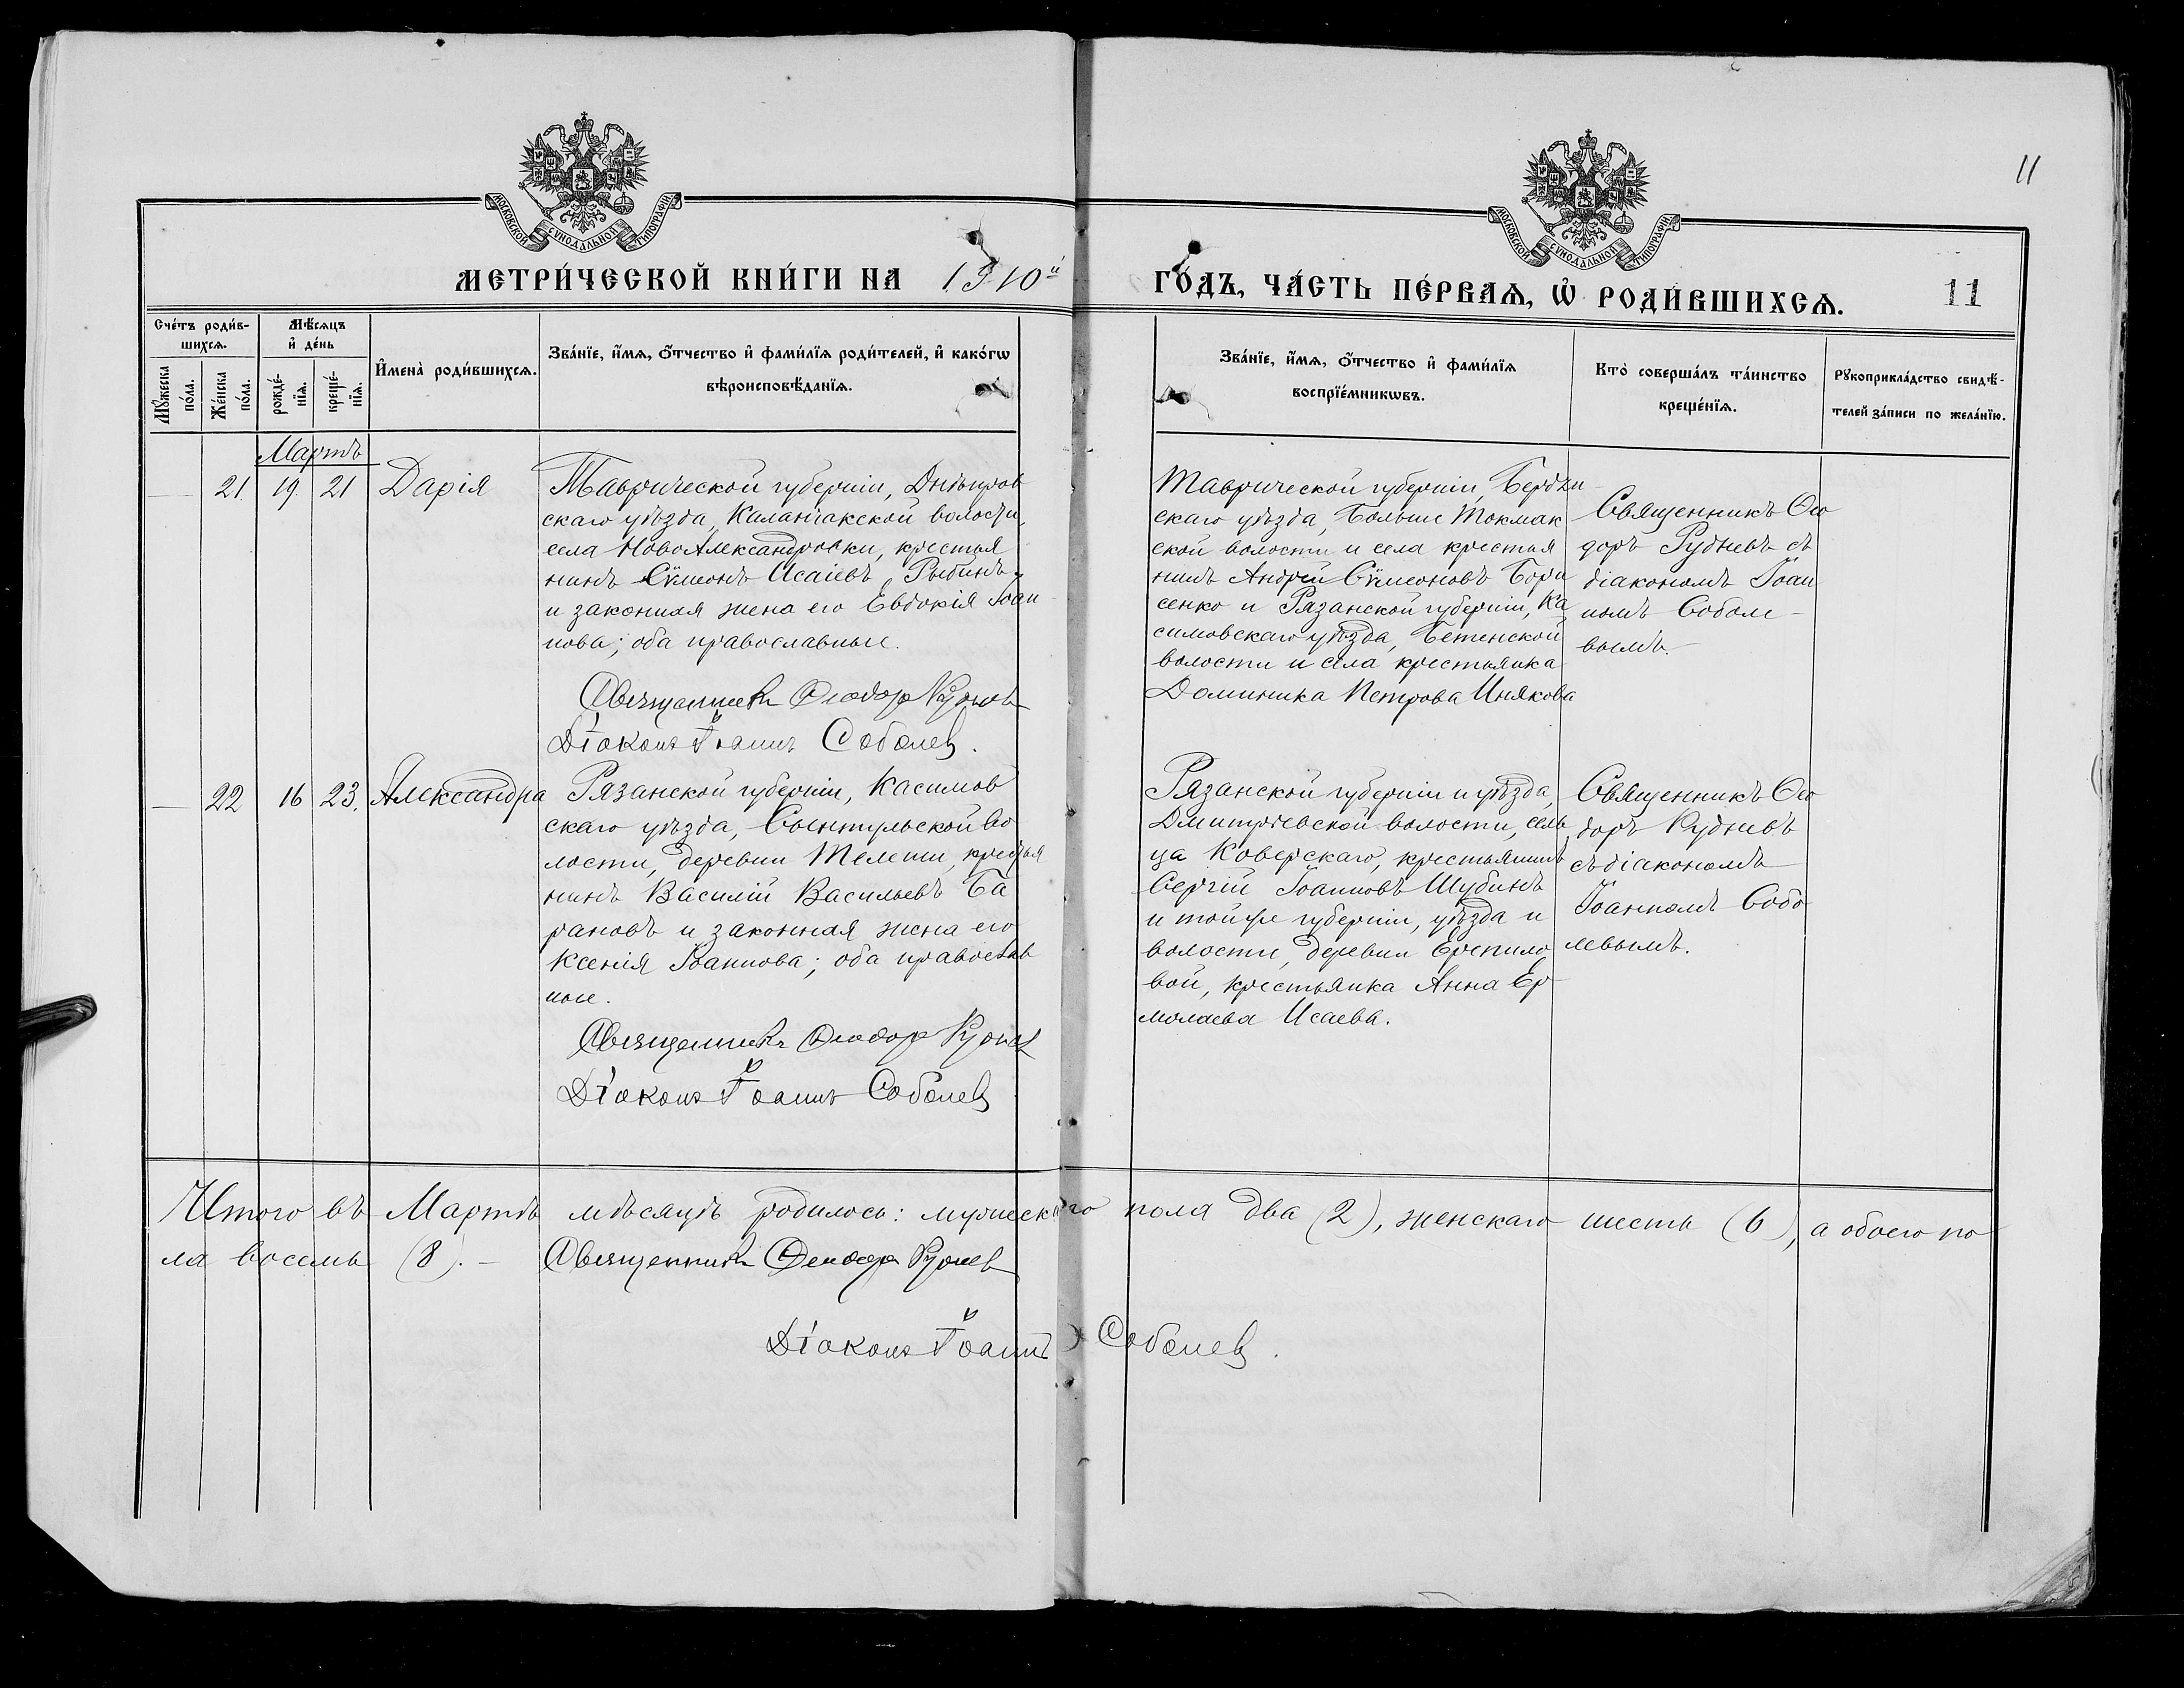 11
МОСКОВСКОЙ СѴНОДАЛЬНОЙ ТИПОГРАФІИ
МОСКОВСКОЙ СѴНОДАЛЬНОЙ ТИПОГРАФІИ
МЕТРИ́ЧЕСКОЙ КНИ́ГИ НА 1910й ГО́ДЪ, ЧА́СТЬ ПЕ́РВАѦ, Ѡ҆ РОДИ́ВШИХСѦ. 11
Сче́тъ роди́в-
шихсѧ.
Мꙋ́жеска
по́ла.
Же́нска
по́ла.
Мѣ́сѧцъ
и҆ де́нь
рожде́-
нїѧ.
креще́-
нїѧ.
И҆мена̀ роди́вшихсѧ.
Зва́нїе, и҆́мѧ, ѻ҆́тчество и҆ фами́лїѧ роди́телей, и҆ како́гѡ
вѣроисповѣ́данїѧ.
Зва́нїе, и҆́мѧ, ѻ҆́тчество и҆ фами́лїѧ
воспрїе́мникѡвъ.
Кто̀ соверша́лъ та́инство
креще́нїѧ.
Рꙋкоприкла́дство свидѣ́-
телей за́писи по жела́нїю.
Мартъ
— 21. 19. 21 Дарія
Таврической губерніи, Днѣпров
скаго уѣзда, Каланчакской волости,
села НовоАлександровки, крестья
нинъ Сѵмеонъ Исаіевъ Рыбинъ
и законная жена его Евдокія Іоан
нова; оба православные.
Священникъ Ѳеодоръ Рудневъ
Діаконъ Іоаннъ Соболевъ.
Таврической губерніи, Бердян
скаго уѣзда, Больше Токмак
ской волости и села крестья
нинъ Андрей Сѵмеоновъ Бори
сенко и Рязанской губерніи, Ка
симовскаго уѣзда, Бетенской
волости и села крестьянка
Доминика Петрова Инякова
Священникъ Ѳео
доръ Рудневъ съ
діакономъ Іоан
номъ Соболе-
вымъ.
— 22 16 23. Александра
Рязанской губерніи, Касимов
скаго уѣзда, Сынтульской во
лости, деревни Телети, крестья
нинъ Василій Васильевъ Ба
рановъ и законная жена его
Ксенія Іоаннова; оба православ
ные.
Священникъ Ѳеодоръ Рудневъ
Діаконъ Іоаннъ Соболевъ
Рязанской губерніи и уѣзда,
Дмитріевской волости, сель
ца Коверскаго, крестьянинъ
Сергій Іоанновъ Шубинъ
и той же губерніи, уѣзда и
волости, деревни
вой, крестьянка Анна Ер-
молаева Исаева.
Священникъ Ѳео
доръ Рудневъ
съ діакономъ
Іоанномъ Собо
левымъ.
Итого въ Мартѣ мѣсяцѣ родилось: мужескаго пола два (2), женскаго шесть (6), а обоего по
ла восемь (8). — Священникъ Ѳеодоръ Рудневъ
Діаконъ Іоаннъ Соболевъ.